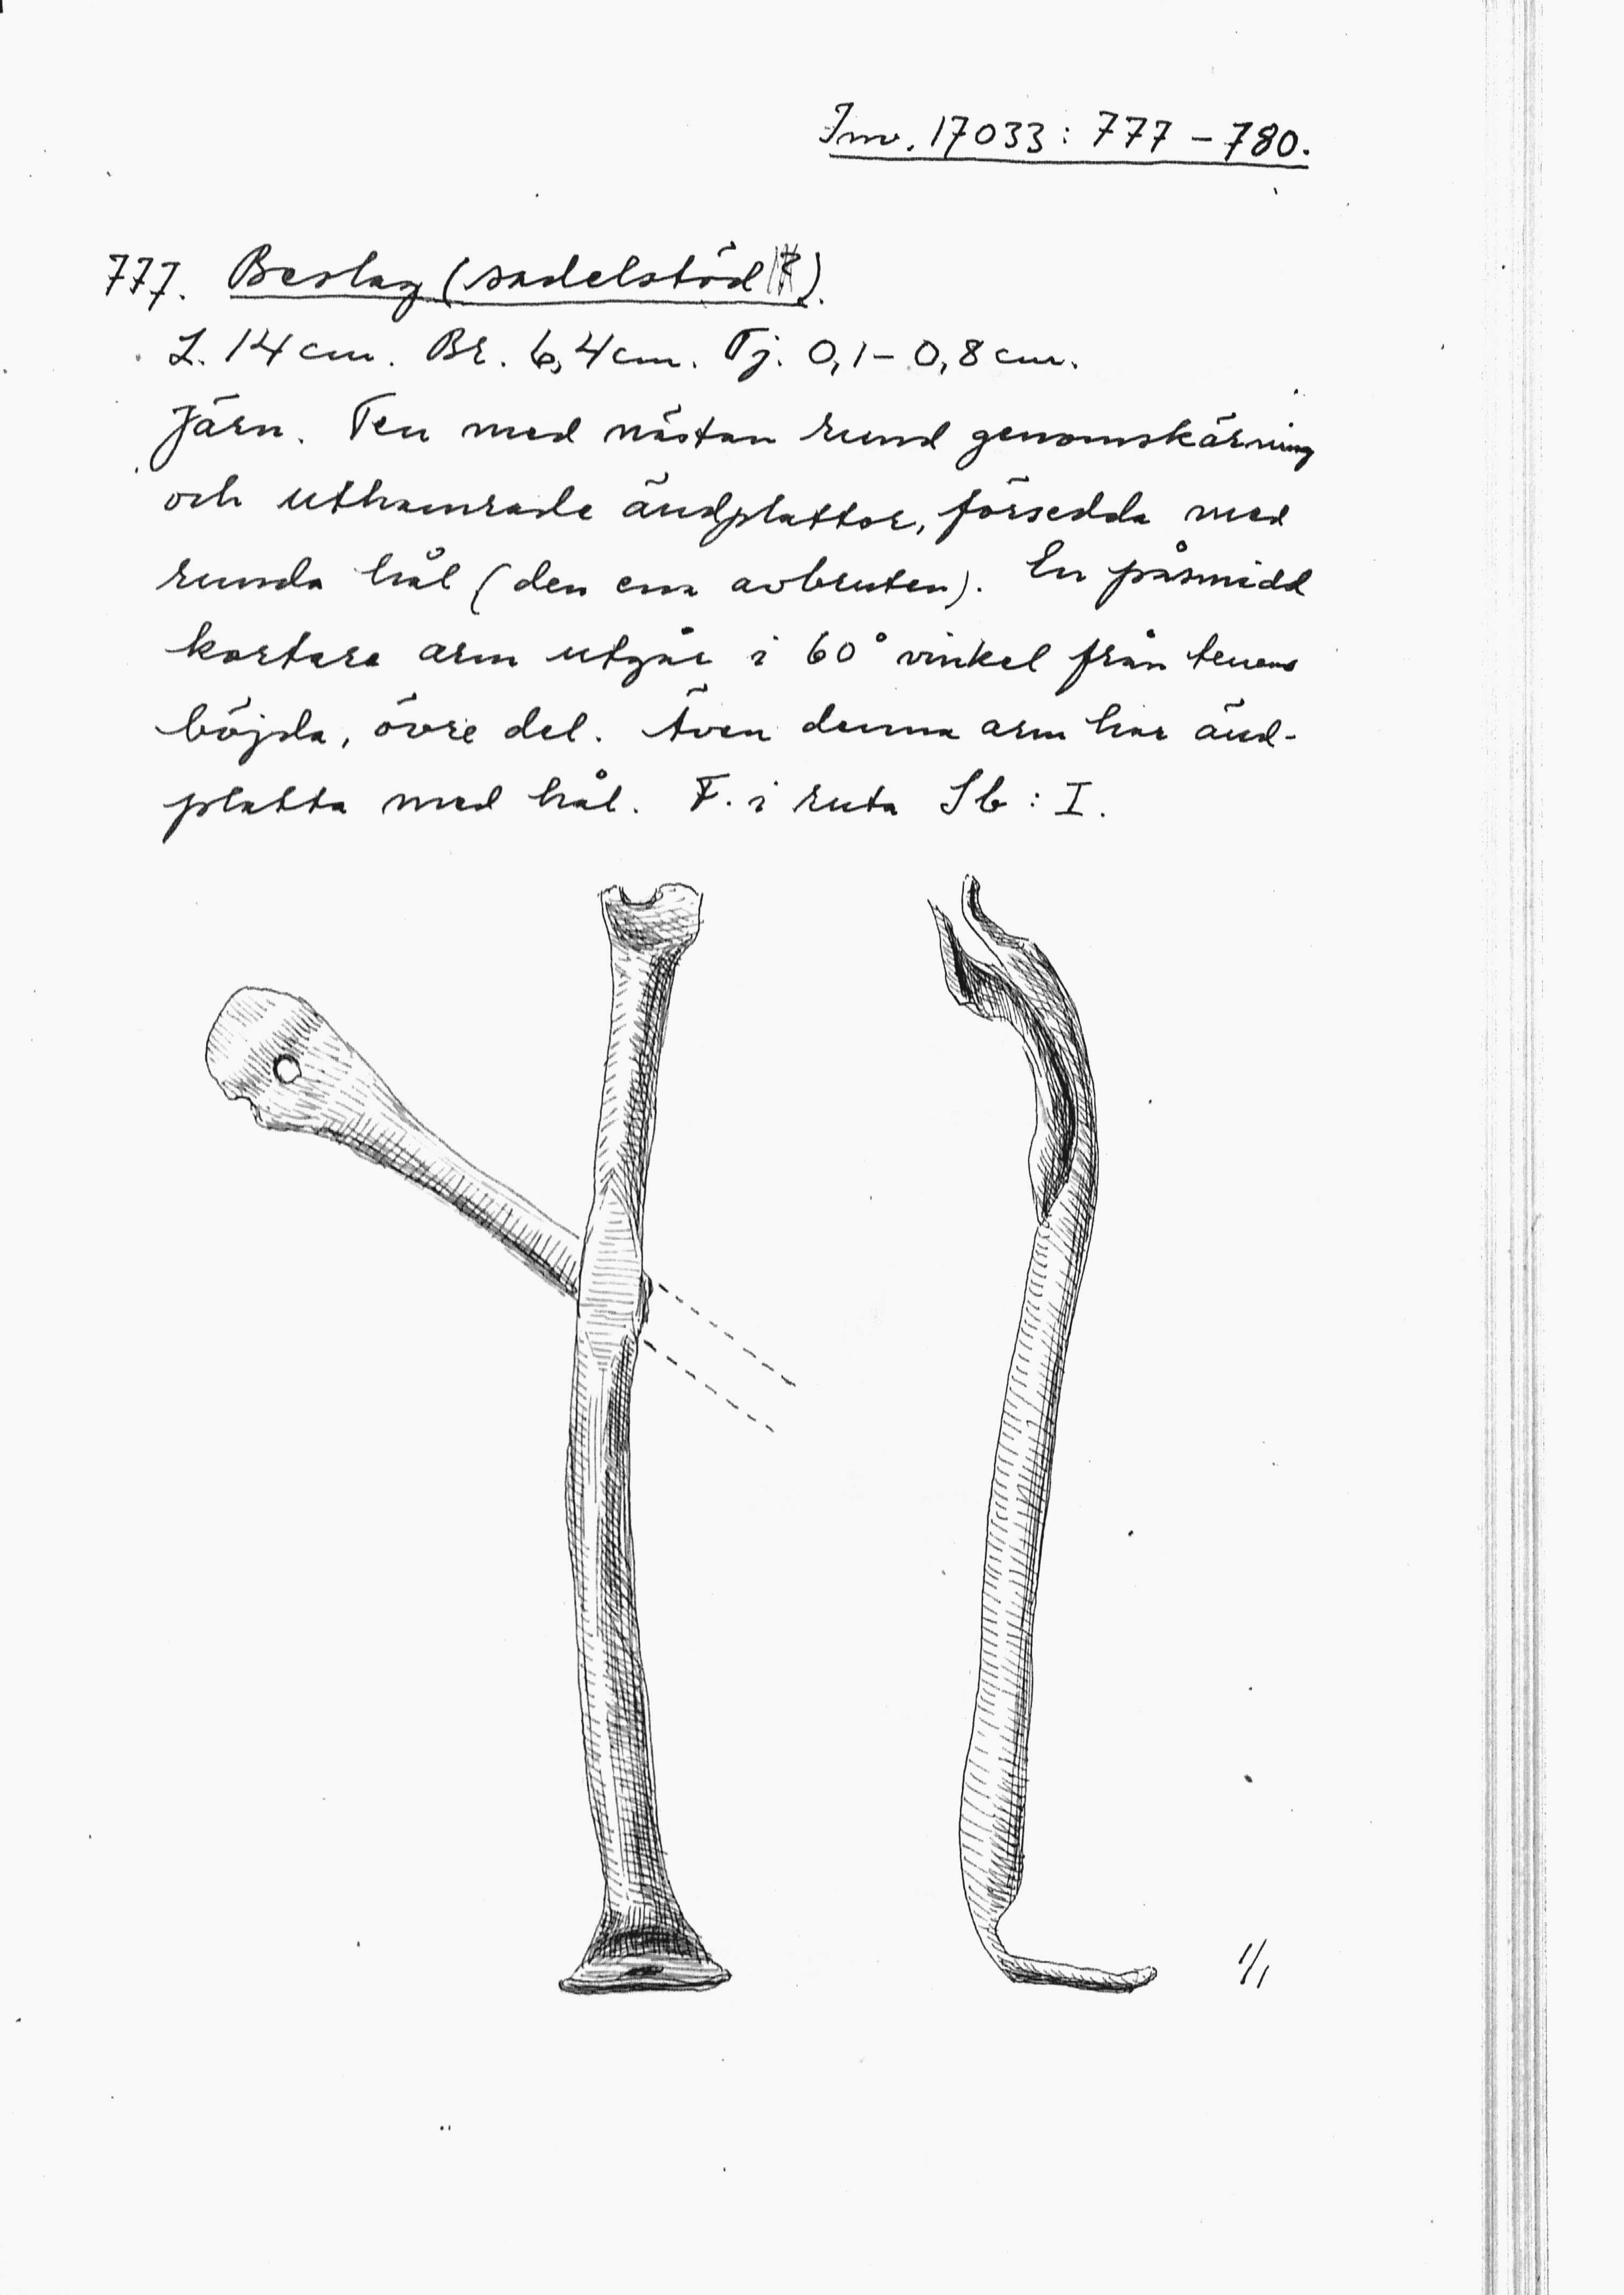 Inv. 17033: 777 – 780.
777. Beslag (sadelstöd).
L. 14 cm. Br. 6,4 cm. Tj. 0,1 – 0,8 cm.
Järn. Ten med nästan rund genomskärning
och uthamrade ändplattor, försedda med
runda hål (den ena avbruten). En påsmidd
kortare arm utgår i 60° vinkel från tenens
böjda, övre del. Även denna arm har änd-
platta med hål. F. i ruta Sb : I.
1/1